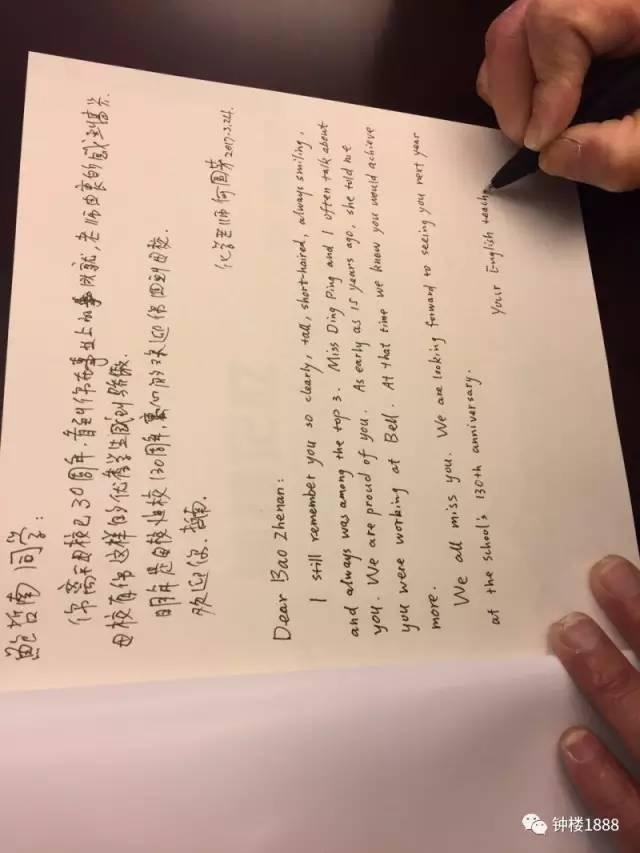 鲍哲南同学:
你离开母校已30周年.看到你在事业上的成就,老师由衷的感到高兴.
母校有你这样的优秀学生感到骄傲.
明年是母校建校130周年,衷心的欢迎你回到母校.
欢迎你.哲南.
化学老师 何国芳 2017.3.24.
Dear Bao Zhenan:
I still remember you so clearly, tall, short-haired, always smiling,
and always was among the top 3. Miss Ding Ping and I often talk about
you. We are proud of you. As early as 15 years ago, she told me
you were working at Bell. At that time we know you would achieve
more.
We all miss you. We are looking forward to seeing you next year
at the school's 130th anniversary.
your English teach
钟楼1888